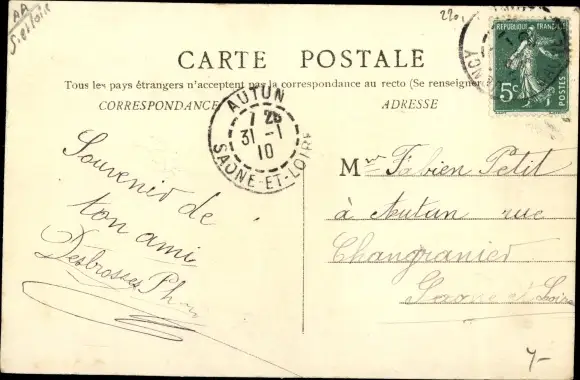 AA
S. et Loire
220,
CARTE POSTALE
Tous les pays étrangers n'acceptent pas la correspondance au recto (Se renseigner
CORRESPONDANCE
ADRESSE
REPUBLIQUE FRANÇAISE
5c
POSTES
AUTUN
1 25
31 -1
10
SAONE-ET-LOIRE
Souvenir de
ton ami
Desbrosses Ph
Mr Fabien Petit
à Autun rue
Changranier
Saone et Loire
7-